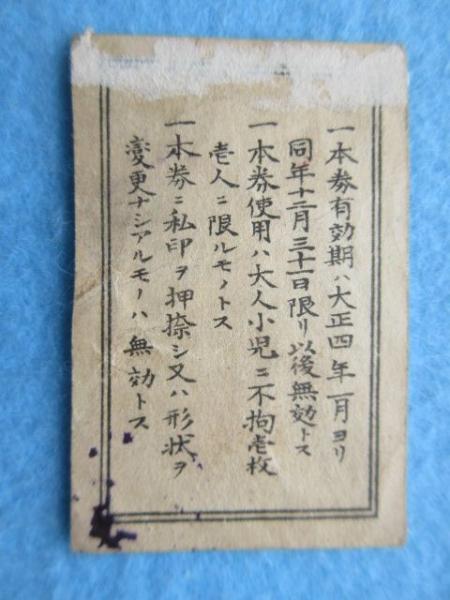 一本券有効期ハ大正四年一月ヨリ
同年十二月三十一日限リ以後無効トス
一本券使用ハ大人小児ニ不拘壱枚
壱人ニ限ルモノトス
一本券ニ私印ヲ押捺シ又ハ形状ヲ
変更ナシアルモノハ無効トス